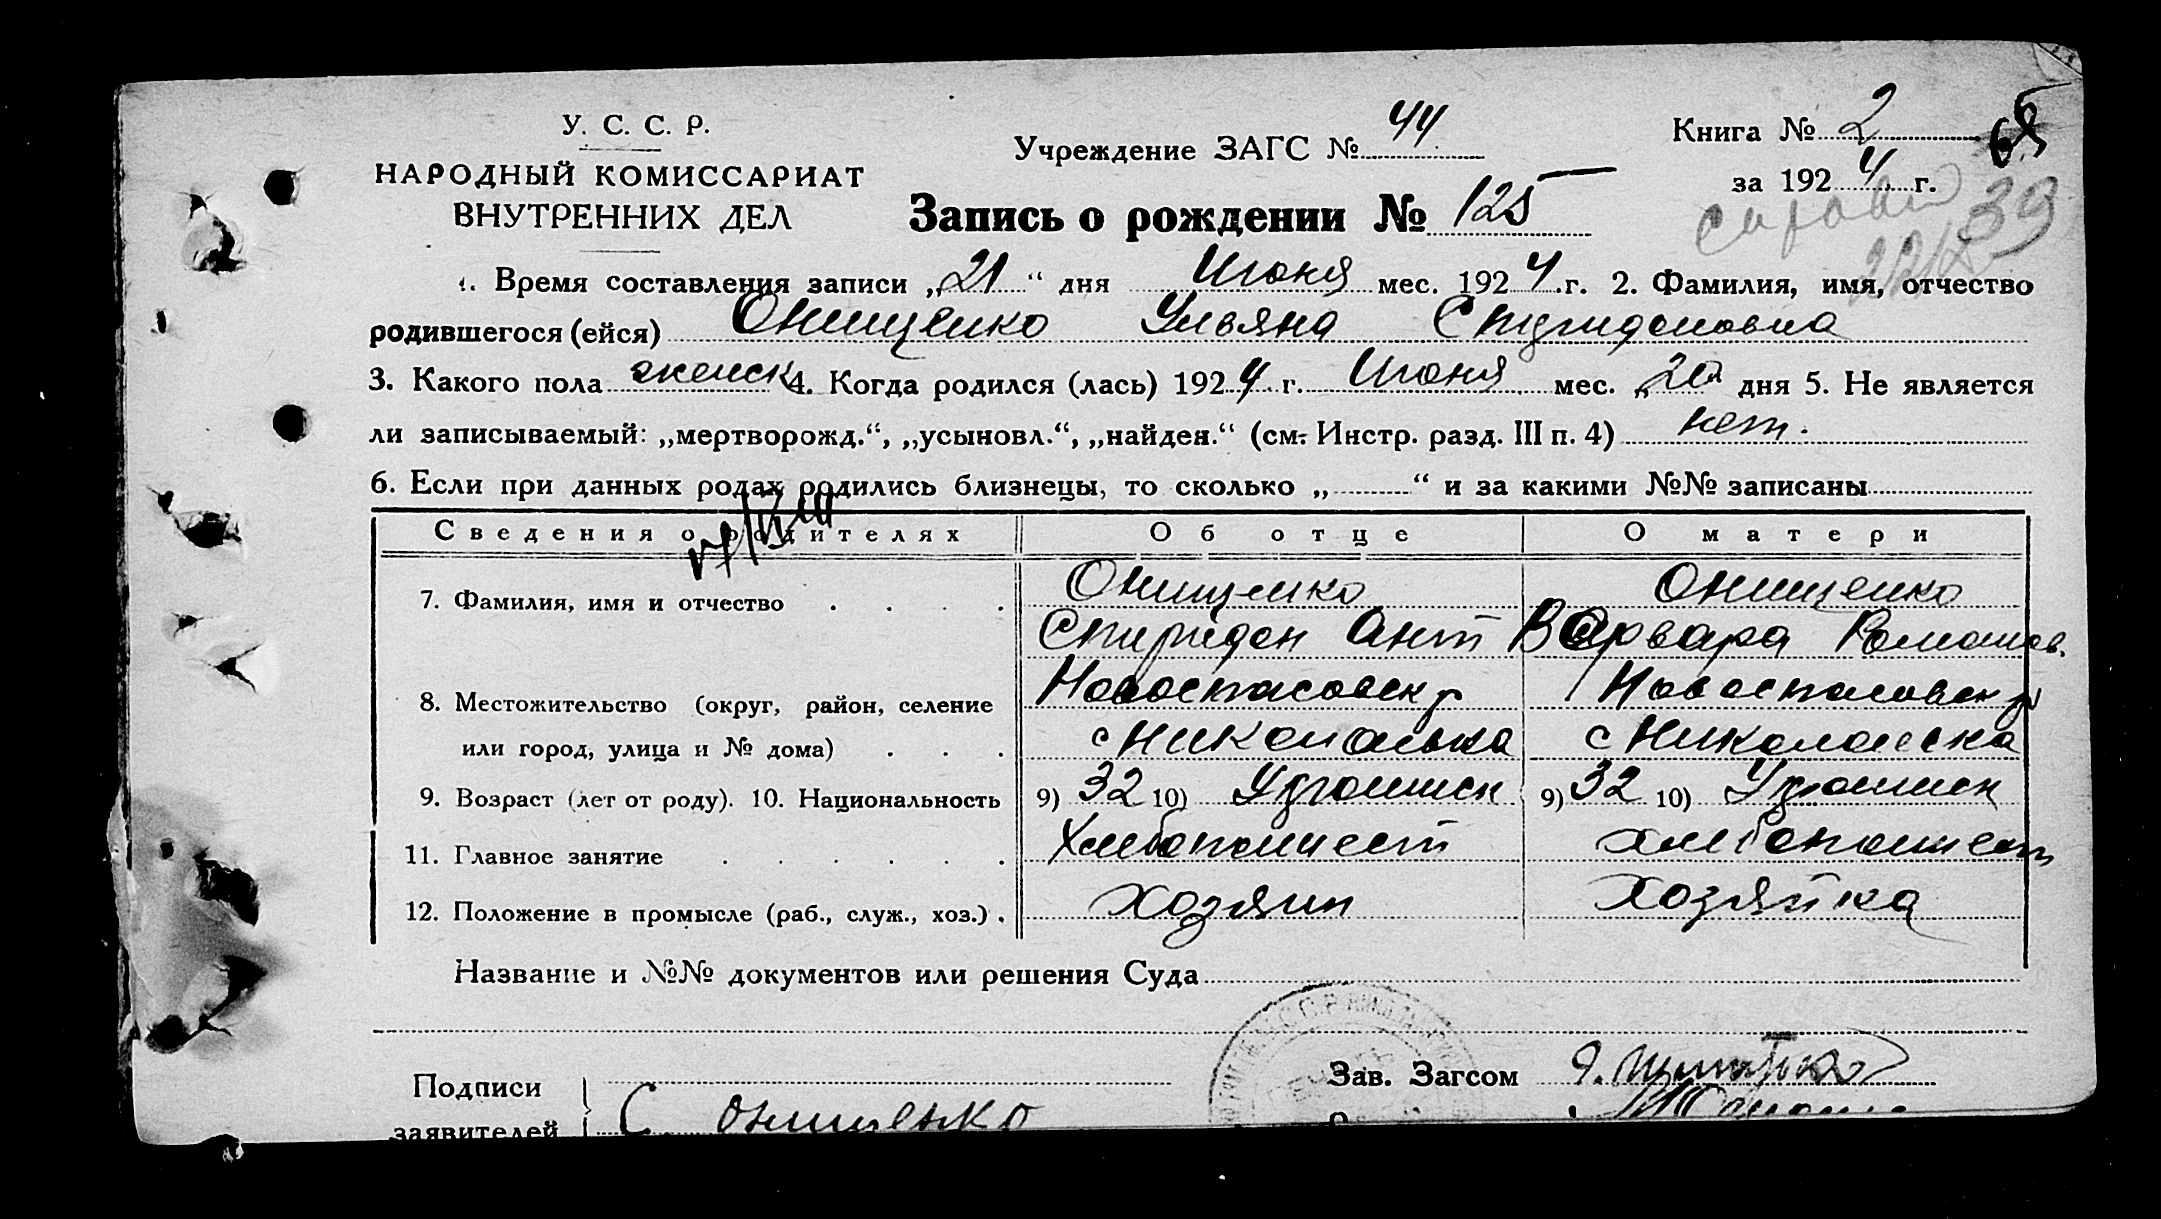 У. С. С. Р.
НАРОДНЫЙ КОМИССАРИАТ
ВНУТРЕННИХ ДЕЛ
Учреждение ЗАГС № 44
Книга № 2
за 1924 г.
39
Запись о рождении № 125
1. Время составления записи „21“ дня Июня мес. 1924 г. 2. Фамилия, имя, отчество
родившегося (ейся) Онищенко Ульяна Спиридоновна
3. Какого пола женск 4. Когда родился (лась) 1924 г. Июня мес. „20 дня 5. Не является
ли записываемый: „мертворожд.“, „усыновл.“, „найден.“ (см. Инстр. разд. III п. 4) нет.
6. Если при данных родах родились близнецы, то сколько „ “ и за какими №№ записаны
Сведения о родителях Об отце О матери
7. Фамилия, имя и отчество Онищенко Онищенко
Спиридон Ант Варвара Романов.
8. Местожительство (округ, район, селение Новоспасовск р Новоспасовск р
или город, улица и № дома) с Николаевка с Николаевка
9. Возраст (лет от роду). 10. Национальность 9) 32 10) Украинск 9) 32 10) Украинск
11. Главное занятие Хлебопашест хлебопашест
12. Положение в промысле (раб., служ., хоз.) хозяин хозяйка
Название и №№ документов или решения Суда
Подписи
заявителей
С Онищенко
Зав. Загсом